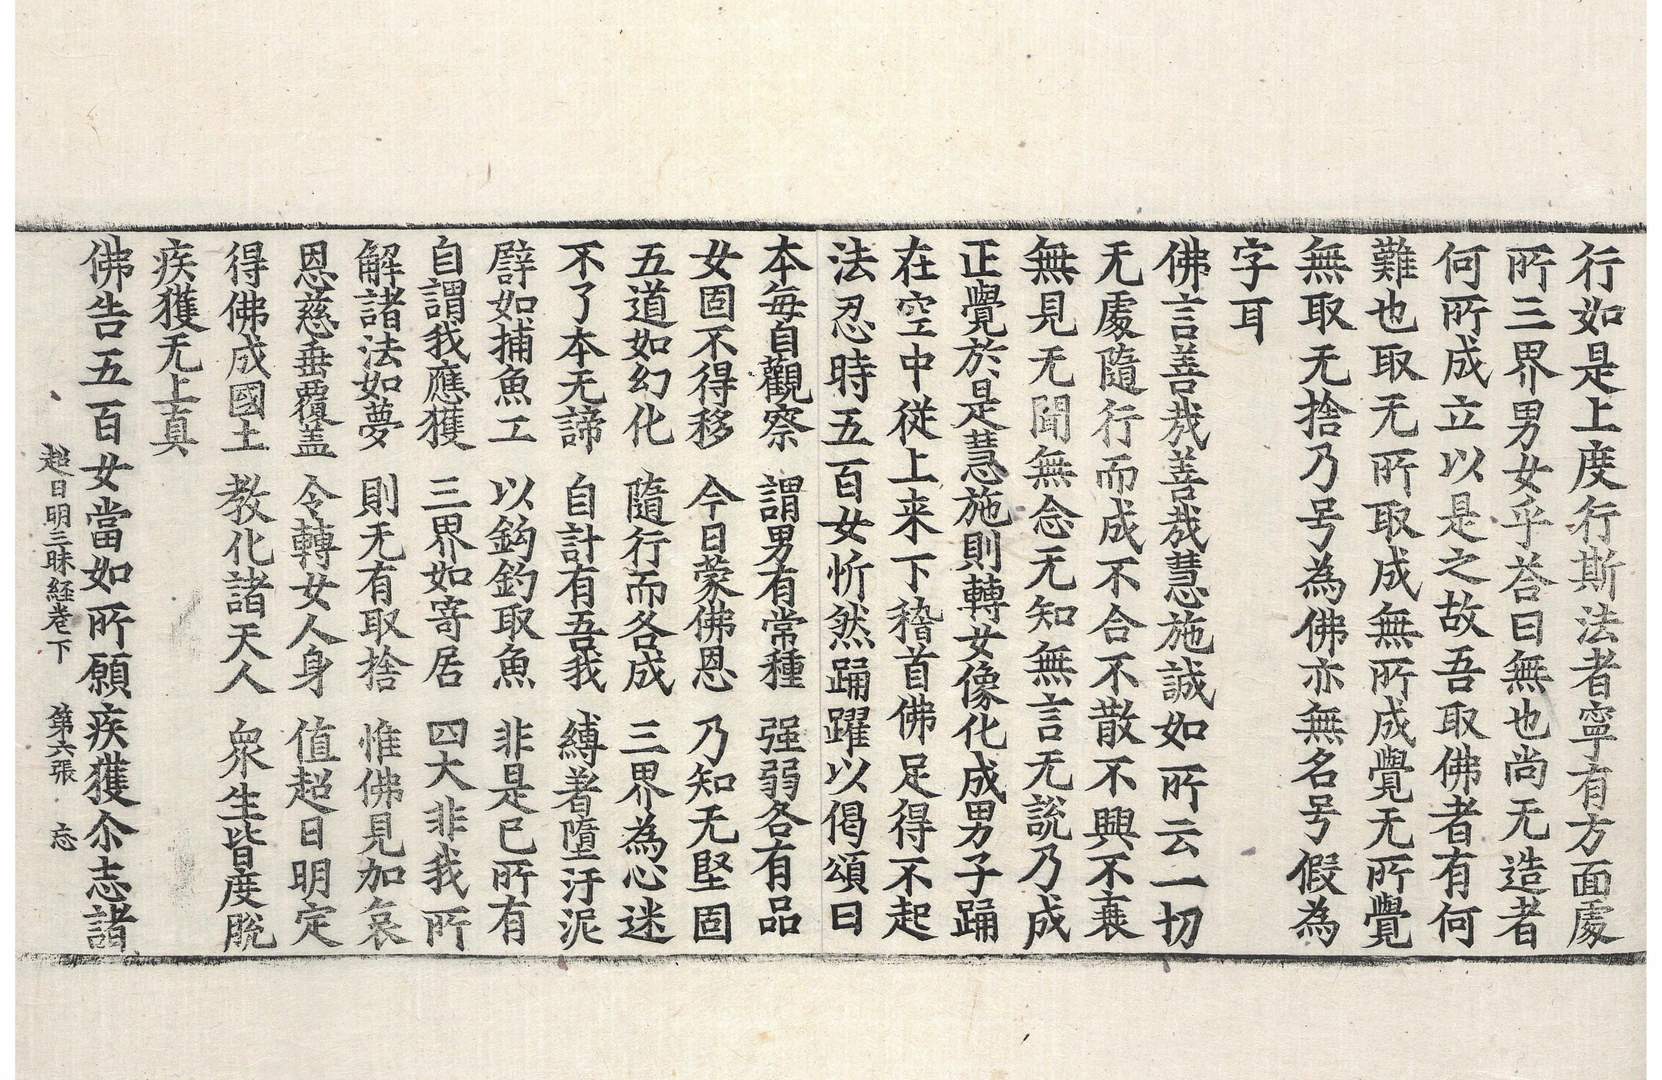 行如是上度行斯法者寧有方面處
所三界男女乎荅曰無也尚无造者
何所成立以是之故吾取佛者有何
難也取无所取成無所成覺无所覺
無取无捨乃号為佛亦無名号假為
字耳
佛言善哉善哉慧施誠如所云一切
无處隨行而成不合不散不興不衰
無見无聞無念无知無言无說乃成
正覺於是慧施則轉女像化成男子踊
在空中從上来下稽首佛足得不起
法忍時五百女忻然踊躍以偈頌曰
本每自觀察 謂男有常種 强弱各有品
女固不得移 今日蒙佛恩 乃知无堅固
五道如幻化 隨行而各成 三界為心迷
不了本无諦 自計有吾我 縛著墮汙泥
譬如捕魚工 以鈎釣取魚 非是已所有
自謂我應獲 三界如寄居 四大非我所
解諸法如夢 則无有取捨 惟佛見加哀
恩慈垂覆盖 令轉女人身 值超日明定
得佛成國土 教化諸天人 衆生皆度脫
疾獲无上真
佛告五百女當如所願疾獲尒志諸
超日明三昧経卷下 第六張 忘